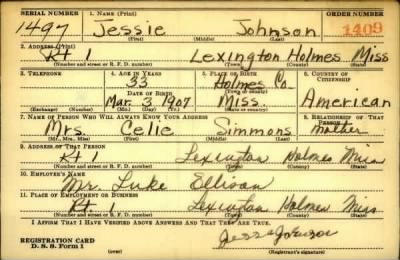 SERIAL NUMBER 1. NAME (Print) ORDER NUMBER
1497 Jessie Johnson 1409
(First) (Middle) (Last)
2. ADDRESS (Print)
Rt 1 Lexington Holmes Miss
(Number and street or R. F. D. number) (Town) (County) (State)
3. TELEPHONE 4. AGE IN YEARS 5. PLACE OF BIRTH 6. COUNTRY OF CITIZENSHIP
33 Holmes Co.
DATE OF BIRTH (Town or county)
Mar. 3 1907 Miss. American
(Exchange) (Number) (Mo.) (Day) (Yr.) (State or country)
7. NAME OF PERSON WHO WILL ALWAYS KNOW YOUR ADDRESS 8. RELATIONSHIP OF THAT PERSON
Mrs. Celie Simmons mother
(Mr., Mrs., Miss) (First) (Middle) (Last)
9. ADDRESS OF THAT PERSON
Rt 1 Lexington Holmes Miss
(Number and street or R. F. D. number) (Town) (County) (State)
10. EMPLOYER'S NAME
Mr. Luke Ellison
11. PLACE OF EMPLOYMENT OR BUSINESS
Rt. 1 Lexington Holmes Miss
(Number and street or R. F. D. number) (Town) (County) (State)
I AFFIRM THAT I HAVE VERIFIED ABOVE ANSWERS AND THAT THEY ARE TRUE.
REGISTRATION CARD
D. S. S. Form 1 (over) (Registrant's signature)